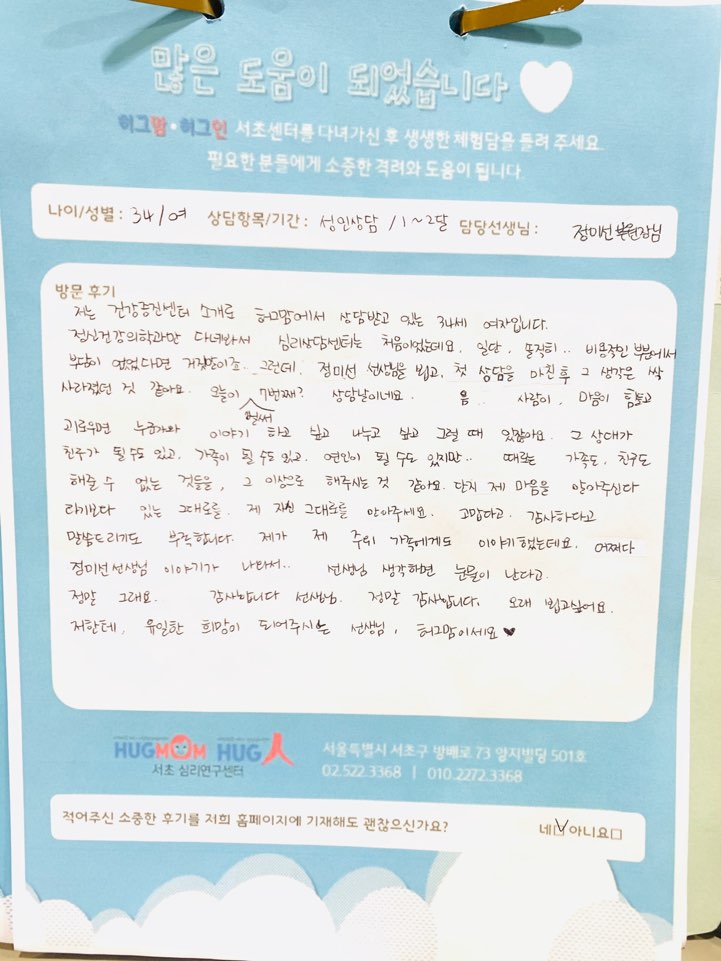 많은 도움이 되었습니다
허그맘•허그인 서초센터를 다녀가신 후 생생한 체험담을 들려 주세요.
필요한 분들에게 소중한 격려와 도움이 됩니다.
나이/성별 : 34/여 상담항목/기간 : 성인상담 / 1~2달 담당선생님 : 정미선 부원장님
방문 후기
저는 건강증진센터 소개로 허그맘에서 상담받고 있는 34세 여자입니다.
정신건강의학과만 다녀봐서 심리상담센터는 처음이었는데요, 일단, 솔직히.. 비용적인 부분에서
부담이 없었다면 거짓말이죠.. 그런데, 정미선 선생님을 뵙고, 첫 상담을 마친 후 그 생각은 싹
사라졌던 것 같아요. 오늘이 벌써 7번째? 상담날이네요. 음.. 사람이, 마음이 힘들고
괴로우면 누군가와 이야기 하고 싶고 나누고 싶고 그럴 때 있잖아요. 그 상대가
친구가 될 수도 있고, 가족이 될 수도 있고, 연인이 될 수도 있지만.. 때로는 가족도, 친구도
해줄 수 없는 것들을, 그 이상으로 해주시는 것 같아요. 단지 제 마음을 안아주신다
라기보다 있는 그대로를. 제 자신 그대로를 안아주세요. 고맙다고, 감사하다고
말씀드리기도 부족합니다. 제가 제 주위 가족에게도 이야기했는데요, 어쩌다
정미선 선생님 이야기가 나와서.. 선생님 생각하면 눈물이 난다고.
정말 그래요. 감사합니다 선생님. 정말 감사합니다. 오래 뵙고싶어요.
저한테, 유일한 희망이 되어주시는 선생님, 허그맘이세요 ♥
HUGMOM HUG人
서초 심리연구센터
서울특별시 서초구 방배로 73 양지빌딩 501호
02.522.3368 | 010.2272.3368
적어주신 소중한 후기를 저희 홈페이지에 기재해도 괜찮으신가요? 네☑ 아니요□